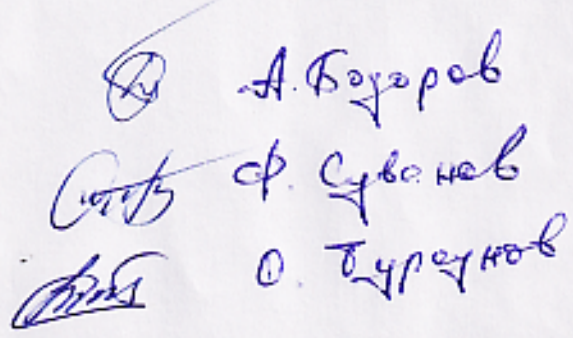 А. Бозоров
Ф. Суванов
О. Турсунов